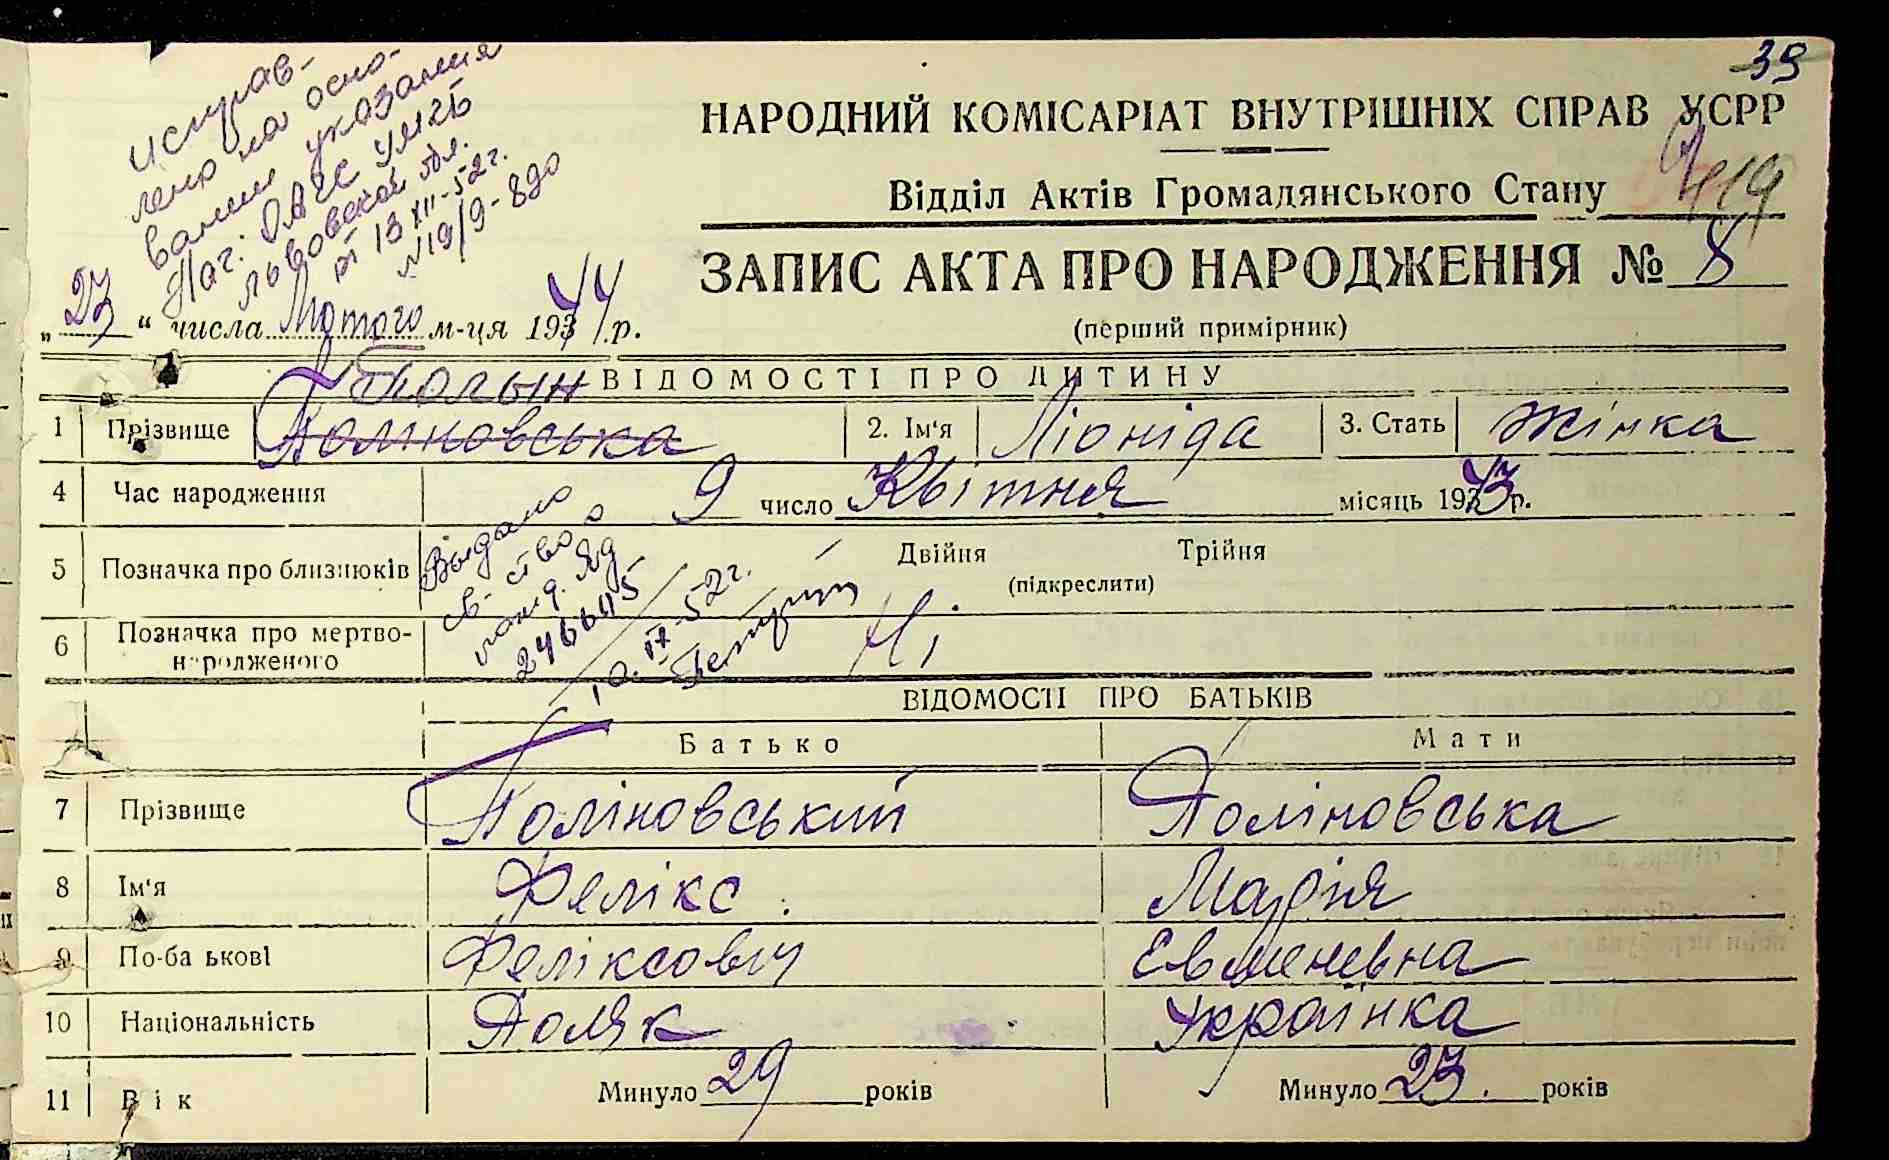 39
исправ-
лено на осно-
вании указания
Наг. ОАГС УМГБ
Львовской обл.
от 13 XII-52 г.
№19/9-890
НАРОДНИЙ КОМІСАРІАТ ВНУТРІШНІХ СПРАВ УСРР
Відділ Актів Громадянського Стану
419
ЗАПИС АКТА ПРО НАРОДЖЕННЯ № 8
„23“ числа Лютого м-ця 1944 р.
(перший примірник)
ВІДОМОСТІ ПРО ДИТИНУ
1 Прізвище Поліновська 2. Ім‘я Ліоніда 3. Стать Жінка
4 Час народження 9 число Квітня місяць 1943 р.
5 Позначка про близнюків Двійня Трійня
(підкреслити)
6 Позначка про мертво-
народженого Ні
Выдано
св-ство
246645
10.IX-52 г.
ВІДОМОСТІ ПРО БАТЬКІВ
Батько Мати
7 Прізвище Поліновський Поліновська
8 Ім‘я Фелікс Марія
9 По-ба ькові Феліксович Евменевна
10 Національність Поляк Українка
11 Вік Минуло 29 років Минуло 23. років